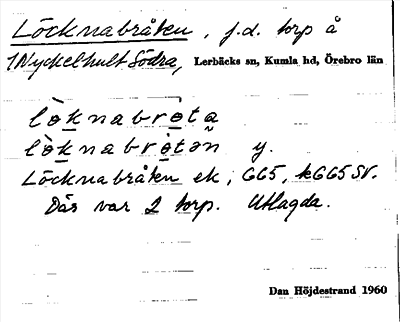 Löcknabråten, f.d. torp å
1 Nyckelhult Södra, Lerbäcks sn, Kumla hd, Örebro län
lö̀knabrota
lö̀knabrotən y.
Löcknabråten ek, G65, kG65SV.
Där var 2 torp. Utlagda.
Dan Höjdestrand 1960